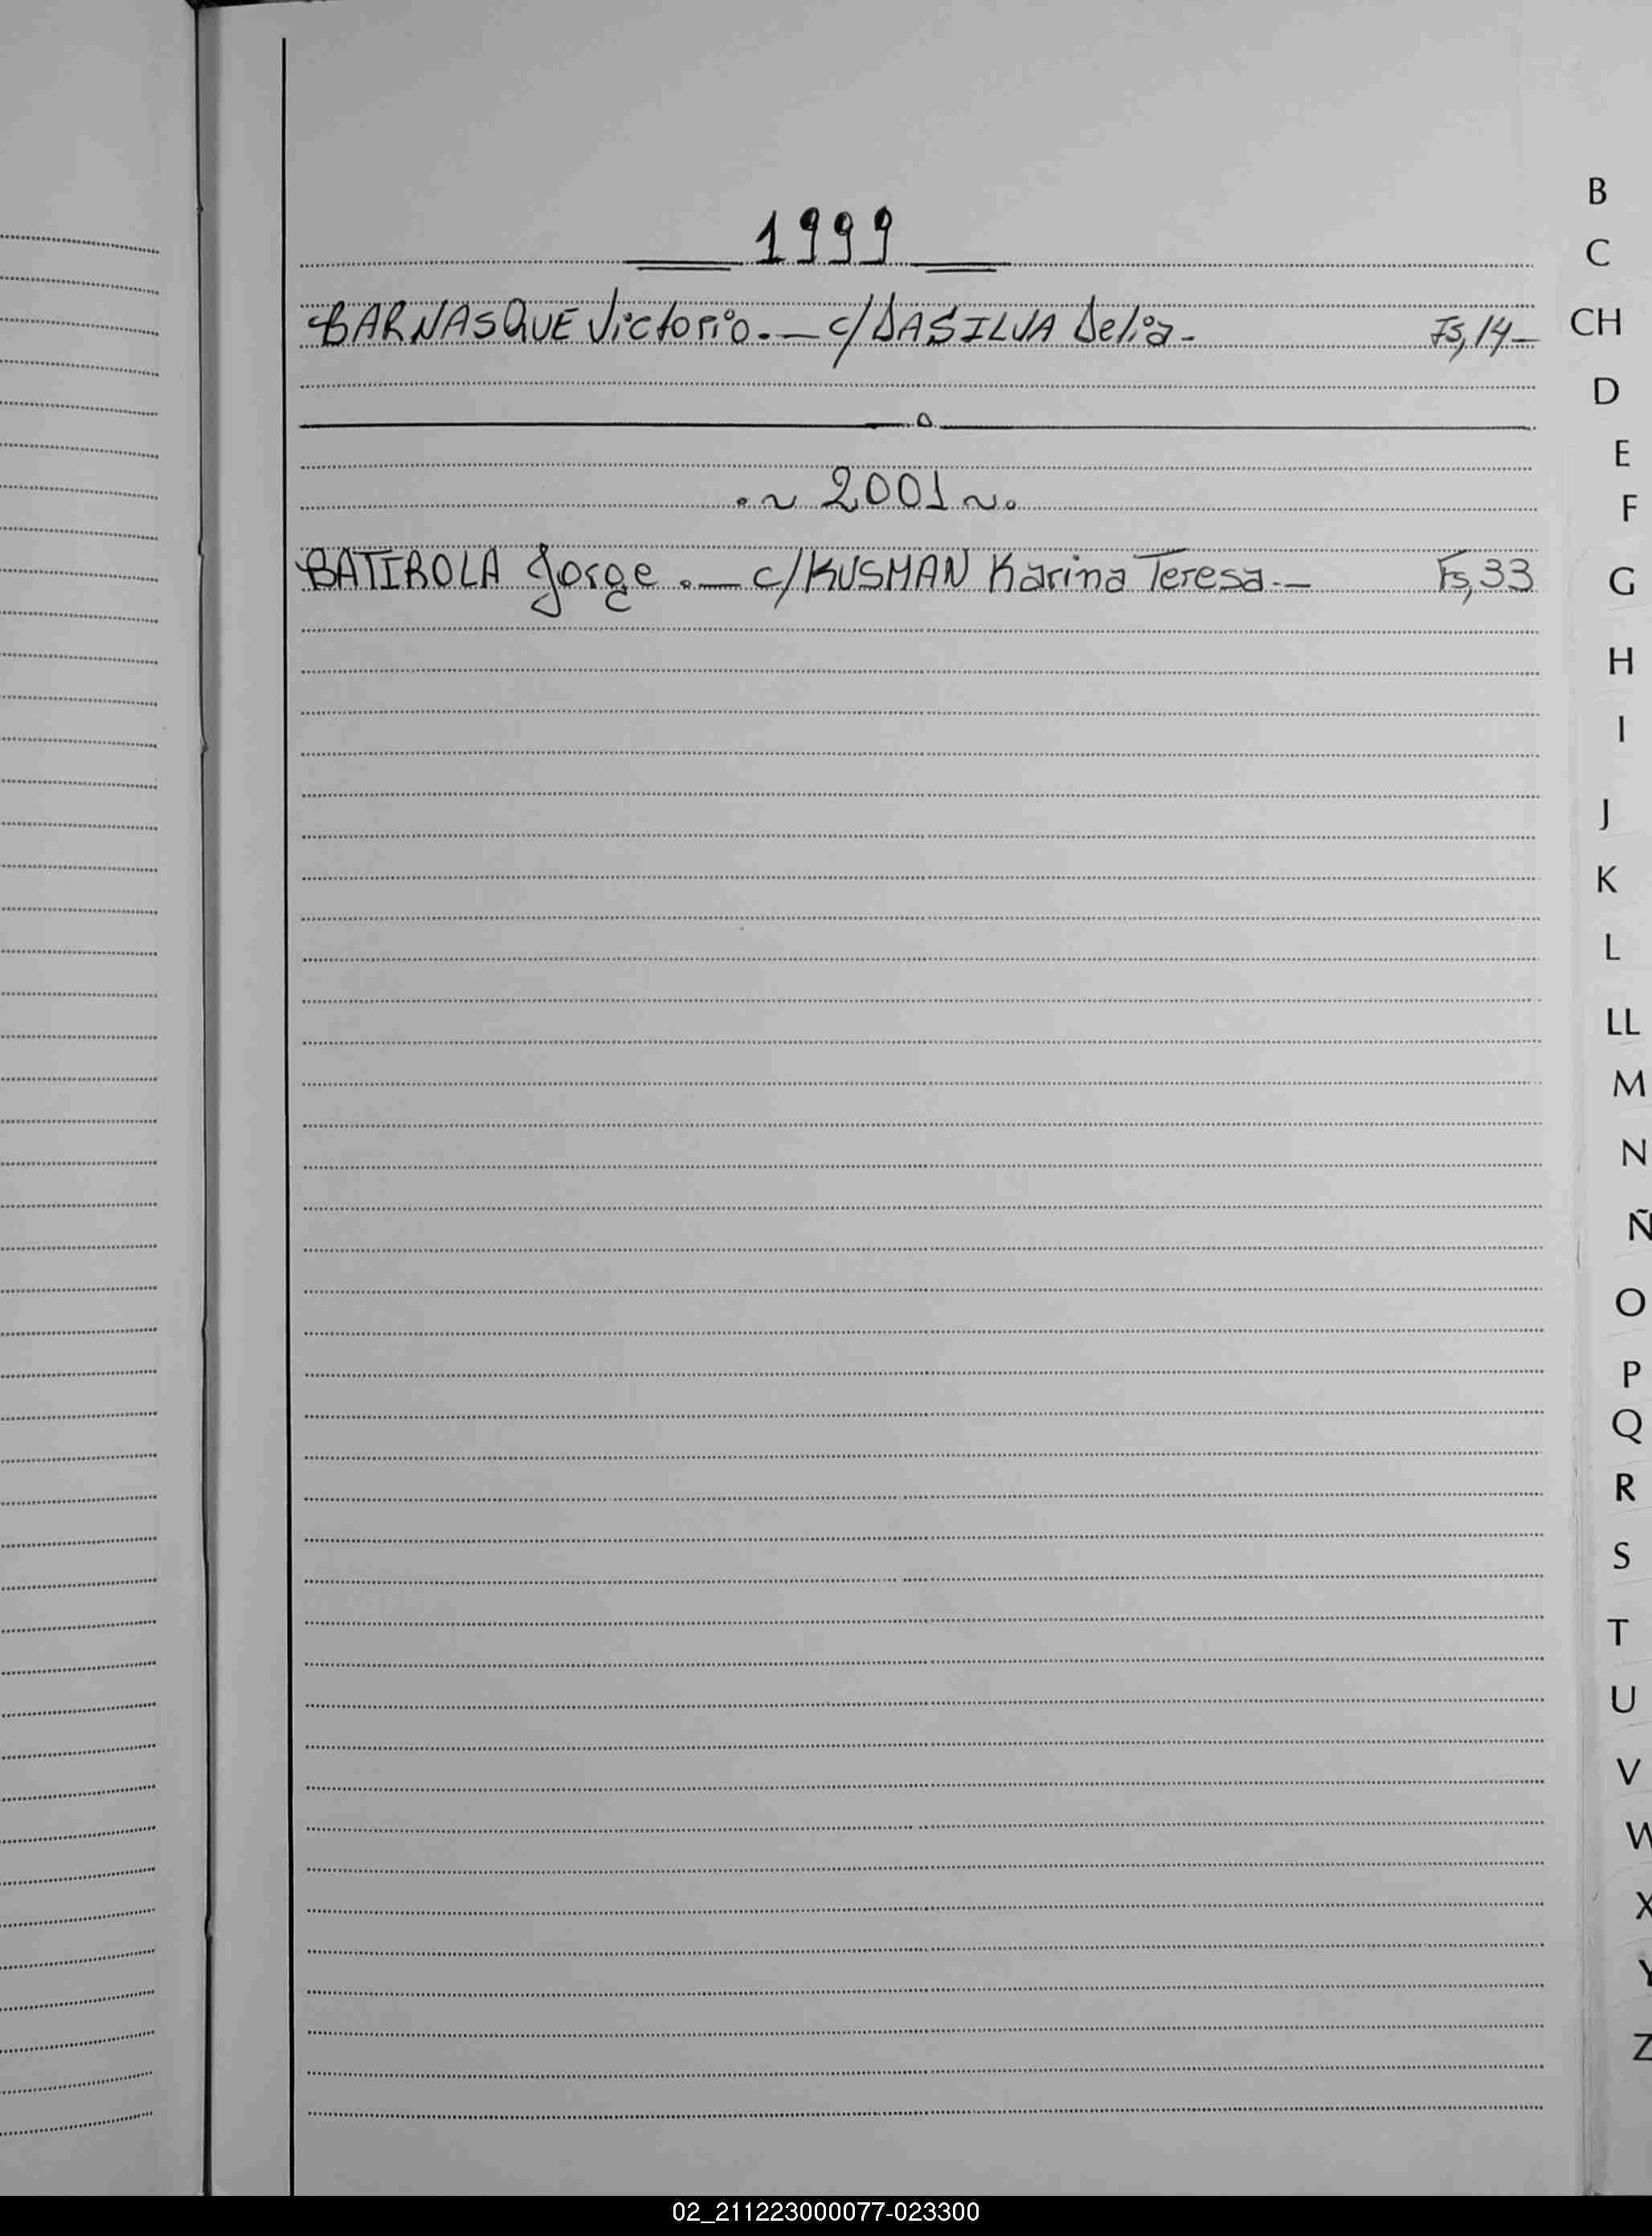 1999
BARNASQUE Victorio.— c/DASILVA Delia- Fs,14—
.~ 2001 ~.
BATIROLA Jorge .— c/KUSMAN Karina Teresa.— Fs,33
B
C
CH
D
E
F
G
H
I
J
K
L
LL
M
N
Ñ
O
P
Q
R
S
T
U
V
W
X
Y
Z
02_211223000077-023300